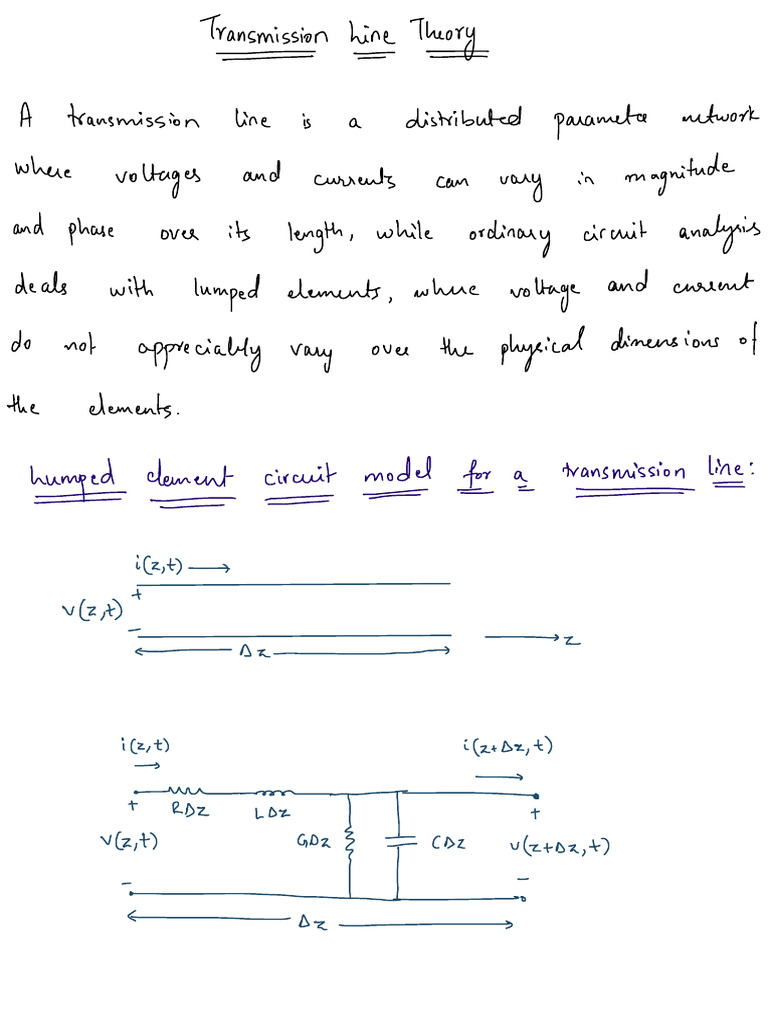 Transmission Line Theory
A transmission line is a distributed parameter network
where voltages and currents can vary in magnitude
and phase over its length, while ordinary circuit analysis
deals with lumped elements, where voltage and current
do not appreciably vary over the physical dimensions of
the elements.
Lumped element circuit model for a transmission line:
i(z,t)
+
v(z,t)
-
Δz
z
i(z,t)
i(z+Δz,t)
+ RΔz LΔz +
v(z,t) GΔz CΔz v(z+Δz,t)
- -
Δz